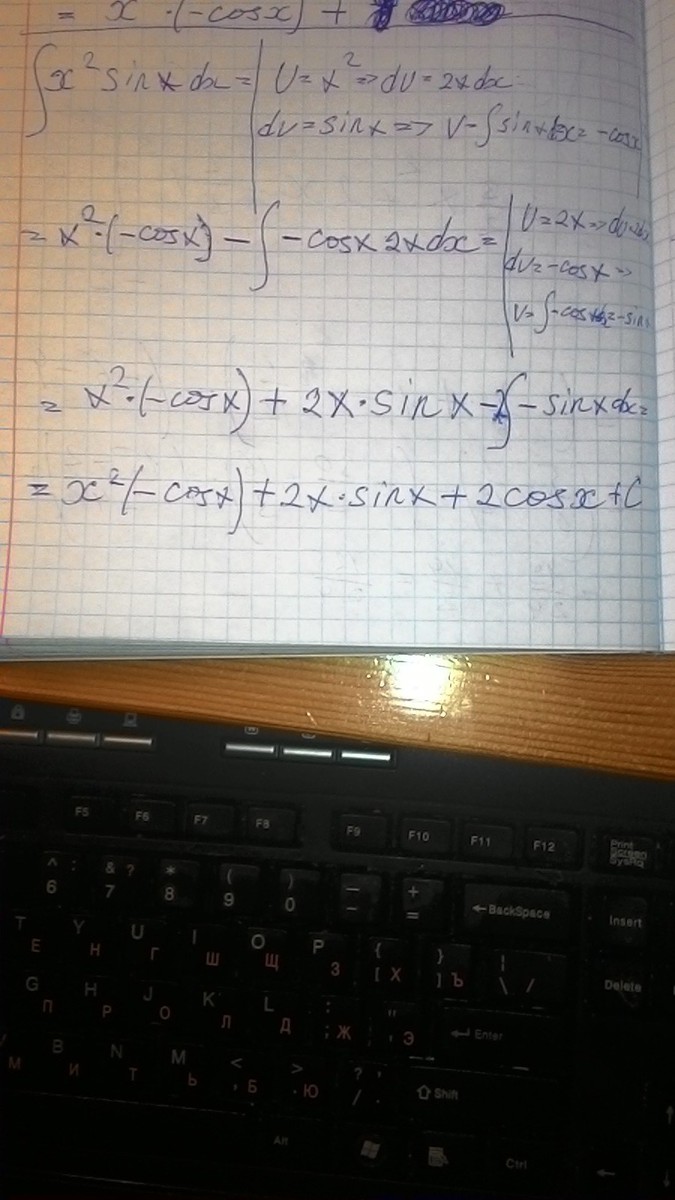 = x · (-cosx) +
∫x² sinx dx = | U = x² => dU = 2x dx
dv = sinx => V - ∫sinx dx = -cosx
= x² · (-cosx) - ∫ -cosx 2x dx = | U = 2x => du = 2dx
dv = -cosx =>
v = ∫-cosx dx = -sinx
= x² · (-cosx) + 2x · sinx - 2∫ - sinx dx =
= x² (-cosx) + 2x · sinx + 2cosx + C
F5 F6 F7 F8 F9 F10 F11 F12 Print Screen SysRq
^ : 6 & ? 7 * 8 ( 9 ) 0 _ - + = ←BackSpace Insert
T Е Y Н U Г I Ш O Щ P З { [ Х } ] Ъ | \ / Delete
G П H Р J О K Л L Д : ; Ж " ' Э ↵ Enter
М B И N Т M Ь < , Б > . Ю ? , / . ⇧ Shift
Alt Ctrl ←